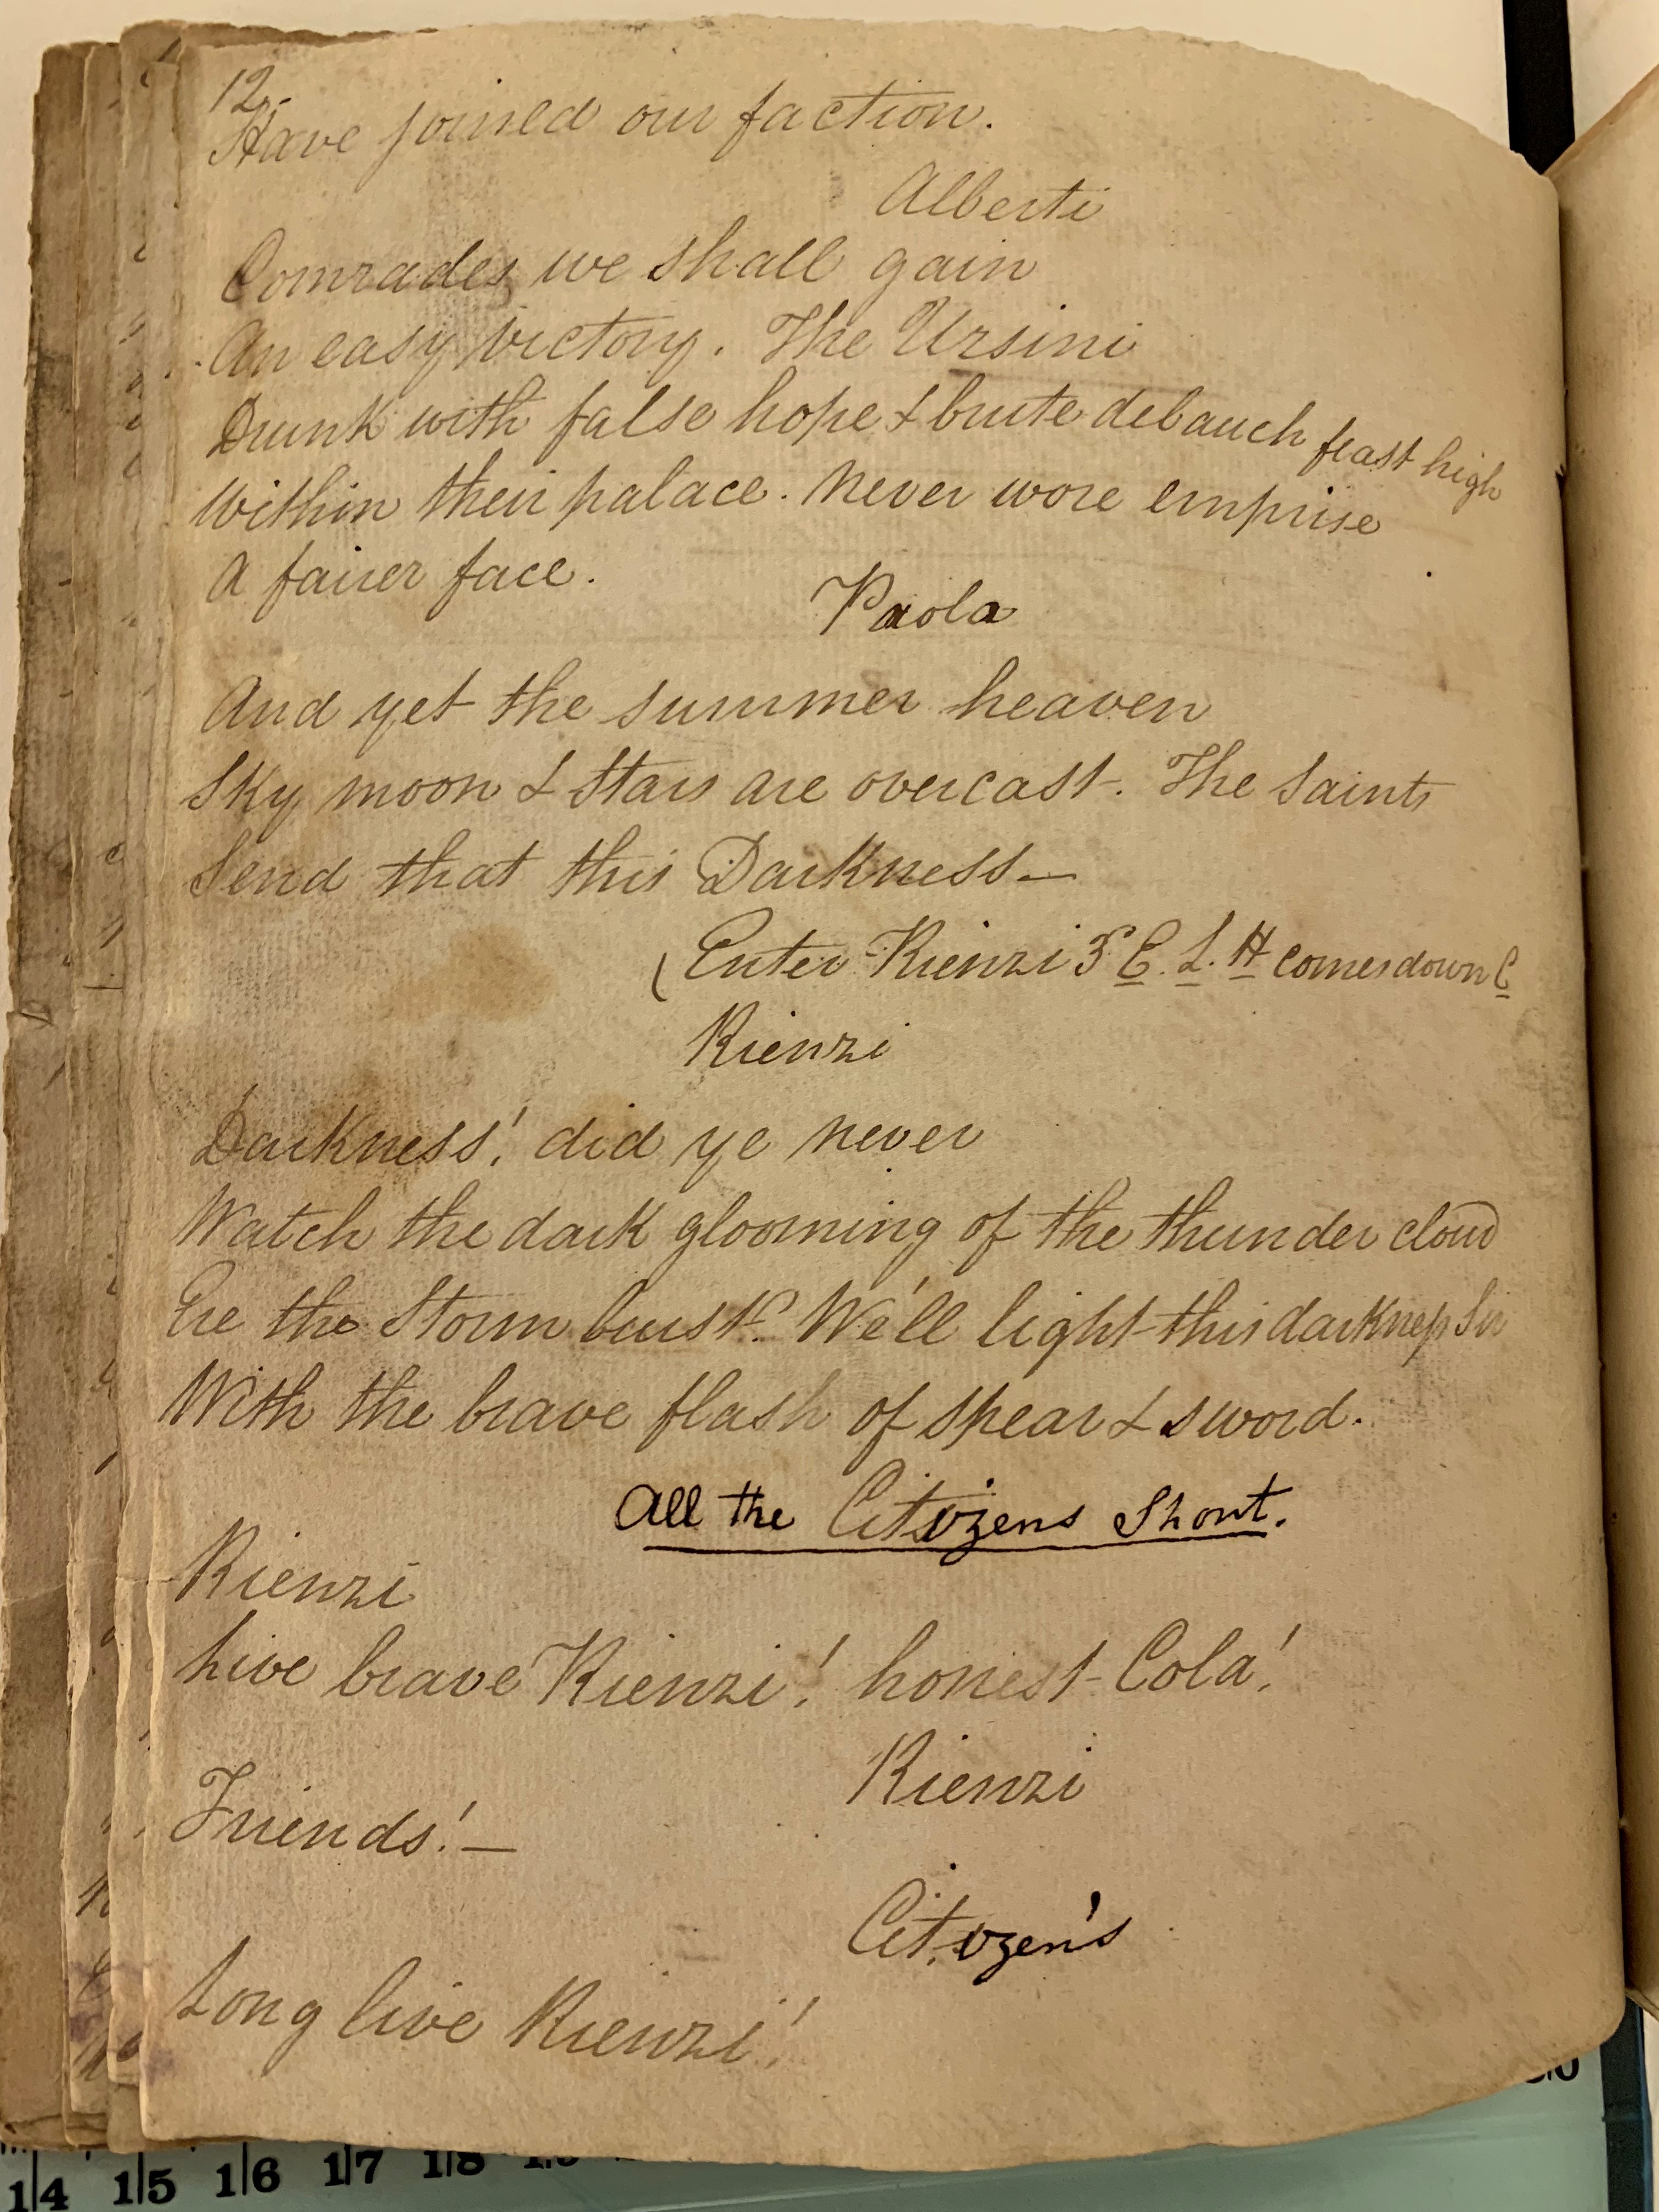 12
Have joined our faction.
Alberti
Comrades, we shall gain
An easy victory. The Ursini
Drunk with false hope & brute debauch feast high
Within their palace. Never wore emprise
A fairer face.
Paola
And yet the summer heaven
Sky, moon & Stars are overcast. The Saints
Send that this Darkness—
(Enter Rienzi 3ᵈ E. L. H comes down C
Rienzi
Darkness! did ye never
Watch the dark glooming of the thunder cloud
Ere the Storm burst? We'll light this darkness Sir
With the brave flash of spear & sword.
All the Citizens Shout.
Rienzi
Live brave Rienzi! honest Cola!
Rienzi
Friends!—
Citizen's
Long live Rienzi!
14 15 16 17 18